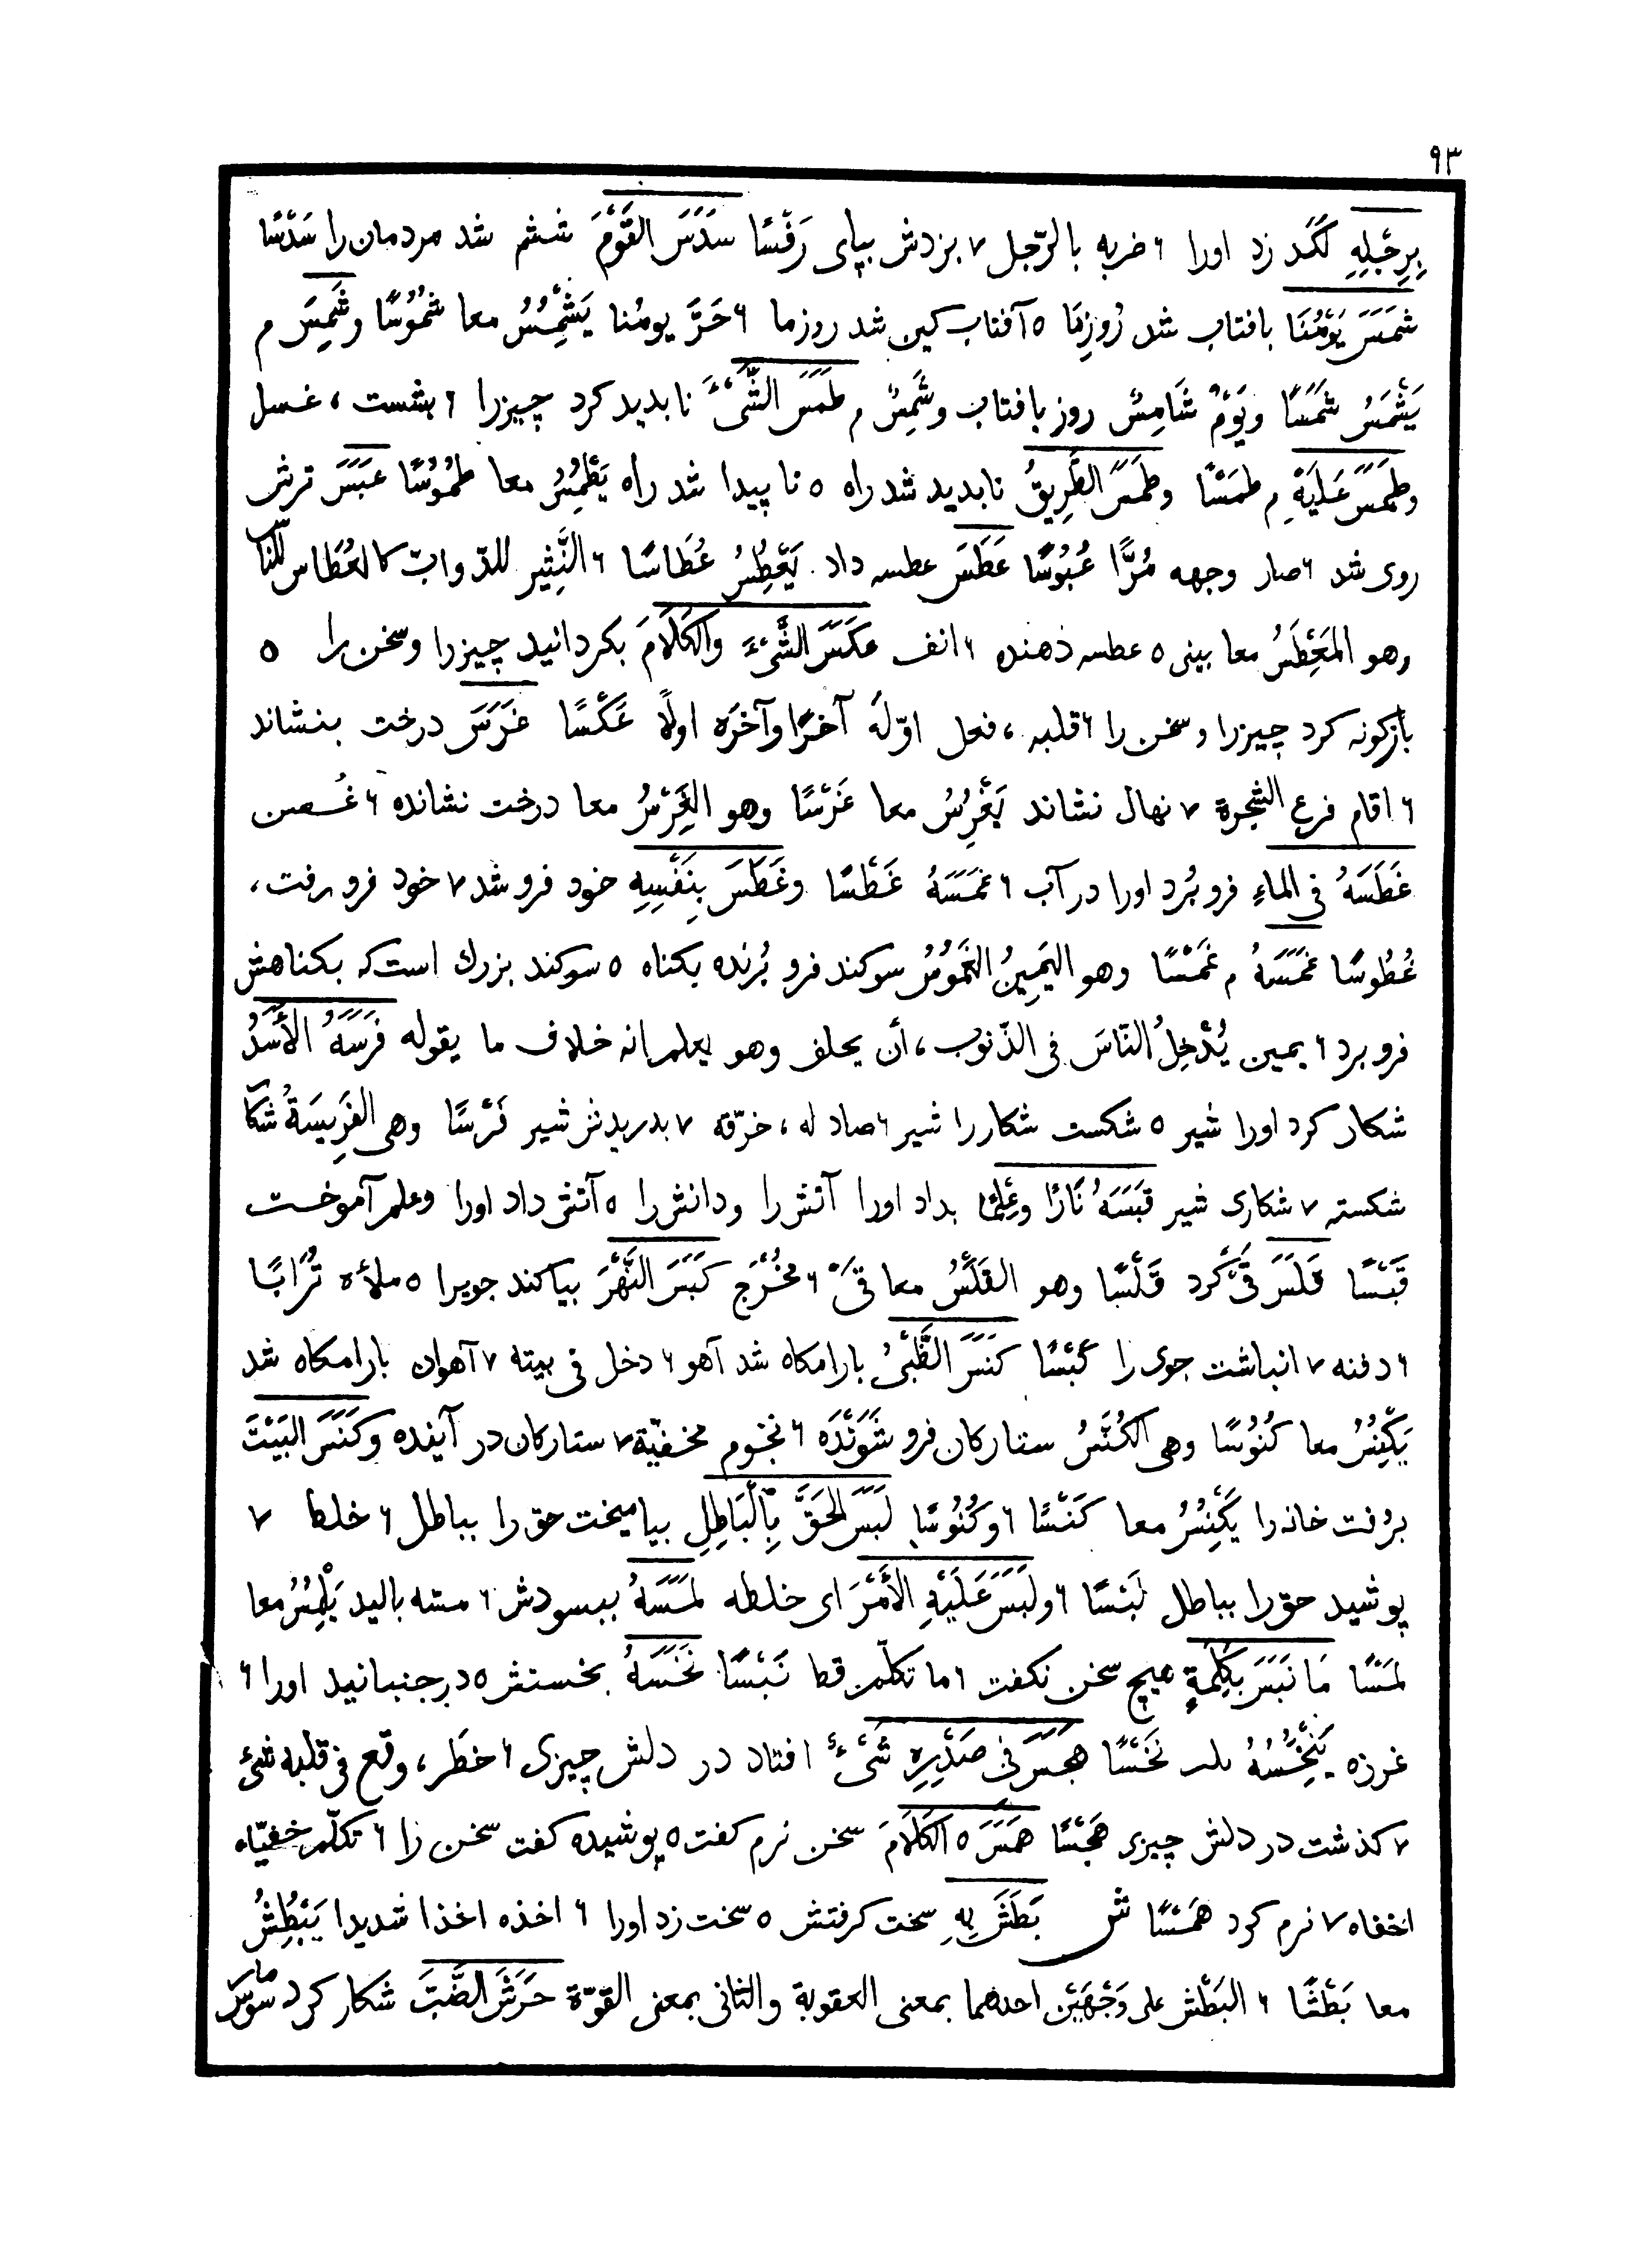 ٩٣
بِرِجْلِهِ لَكَد زد اورا ۶ ضربه بالرّجل ۷ بزدش بپای رَفْسًا سَدَسَ القَوْمَ ششم شد مردمان را سَدْسًا
شَمَسَ يَوْمُنَا بافتاب شد رُوزِمَا ۵ آفتاب کین شد روزما ۶ حَرَّ یومُنا يَشْمِسُ معا شُمُوسًا وشَمِسَ م
يَشْمَسُ شَمَسًا ویَوْمٌ شَامِسٌ روز بافتاب وشَمِسٌ م طَمَسَ الشَّیْءَ نابدید کرد چیزرا ۶ بشست ، غسل
وطَمَسَ عَلَيْهِ م طَمْسًا وطَمَسَ الطَّرِيقُ نابدید شد راه ۵ نا پیدا شد راه يَطْمِسُ معا طُمُوسًا عَبَسَ ترش
روی شد ۶ صار وجهه مُرًّا عُبُوسًا عَطَسَ عطسه داد يَعْطِسُ عُطَاسًا ۶ النَّثِير للدّوابّ كالعُطَاس للنّاس
وهو المَعْطِسُ معا بینی ۵ عطسه دهنده ۶ انف عَكَسَ الشَّیْءَ والكَلَامَ بکردانید چیزرا وسخن را ۵
بازکونه کرد چیزرا وسخن را ۶ قلبه ، فعل اوّلَه آخرًا وآخرَه اولًا عَكْسًا غَرَسَ درخت بنشاند
۶ اقام فرع الشجرة ۷ نهال نشاند يَغْرِسُ معا غَرْسًا وهو الغَرْسُ معا درخت نشانده ۶ غُصن
غَطَسَهُ فی الماءِ فرو بُرد اورا در آب ۶ غمَسَهُ غَطْسًا وغَطَسَ بِنَفْسِهِ خود فرو شد ۷ خود فرو رفت ،
غُطُوسًا غَمَسَهُ م غَمْسًا وهو اليَمِينُ الغَمُوسُ سوکند فرو بُرنده بکناه ۵ سوکند بزرك است که بکناهش
فرو برد ۶ یمین يُدْخِلُ النّاسَ فی الذّنوب ، أن یحلف وهو یعلم انه خلاف ما یقوله فَرَسَهُ الأَسَدُ
شکار کرد اورا شیر ۵ شکست شکار را شیر ۶ صاد له ، خرّقه ۷ بدریدش شیر فَرْسًا وهی الفَرِيسَةُ شکار
شکسته ۷ شکاری شیر قَبَسَهُ نَارًا وعِلْمًا بداد اورا آتش را ودانش را ۵ آتش داد اورا وعلم آموخت
قَبْسًا قَلَسَ قَیْ کرد قَلْسًا وهو القَلَسُ معا قَیْ ۶ مُخْرَج كَبَسَ النَّهْرَ بیاکند جویرا ۵ ملأه تُرَابًا
۶ دفنه ۷ انباشت جوی را كَبْسًا كَنَسَ الظَّبْیُ بارامکاه شد آهو ۶ دخل فی بیته ۷ آهوان بارامکاه شد
يَكْنِسُ معا كُنُوسًا وهی الكُنَّسُ ستارکان فرو شَوَنْدَه ۶ نجوم مخفیّة ۷ ستارکان در آینده وكَنَسَ البَيْتَ
برُفت خانه را يَكْنِسُ معا كَنْسًا ۶ وكُنُوسًا لَبَسَ الحَقَّ بِالْبَاطِلِ بیامیخت حق را بباطل ۶ خلط ۷
پوشید حق را بباطل لَبْسًا ۶ ولَبَسَ عَلَيْهِ الأَمْرَ ای خلطه لَمَسَهُ ببسودش ۶ مسّه بالید يَلْمِسُ معا
لَمْسًا مَا نَبَسَ بِكَلِمَةٍ هیچ سخن نکفت ۶ ما تکلّم قط نَبْسًا نَخَسَهُ بخستش ۵ درجنبانید اورا ۶
غرزه يَنْخُسُهُ نَخْسًا هَجَسَ فی صَدْرِهِ شَیْءٌ افتاد در دلش چیزی ۶ خطَر ، وقع فی قلبه شیء
۷ کذشت در دلش چیزی هَجْسًا هَمَسَ ۵ الكَلَامَ سخن نرم کفت ۵ پوشیده کفت سخن را ۶ تکلّم خفیّا ،
اخفاه ۷ نرم کرد هَمْسًا ش بَطَشَ بِهِ سخت کرفتش ۵ سخت زد اورا ۶ اخذه اخذا شدیدا يَبْطِشُ
معا بَطْشًا ۶ البَطْش علی وَجْهَيْن احدهما بمعنی العقوبة والثانی بمعنی القوّة حَرَشَ الضَّبَّ شکار کرد سوسمار